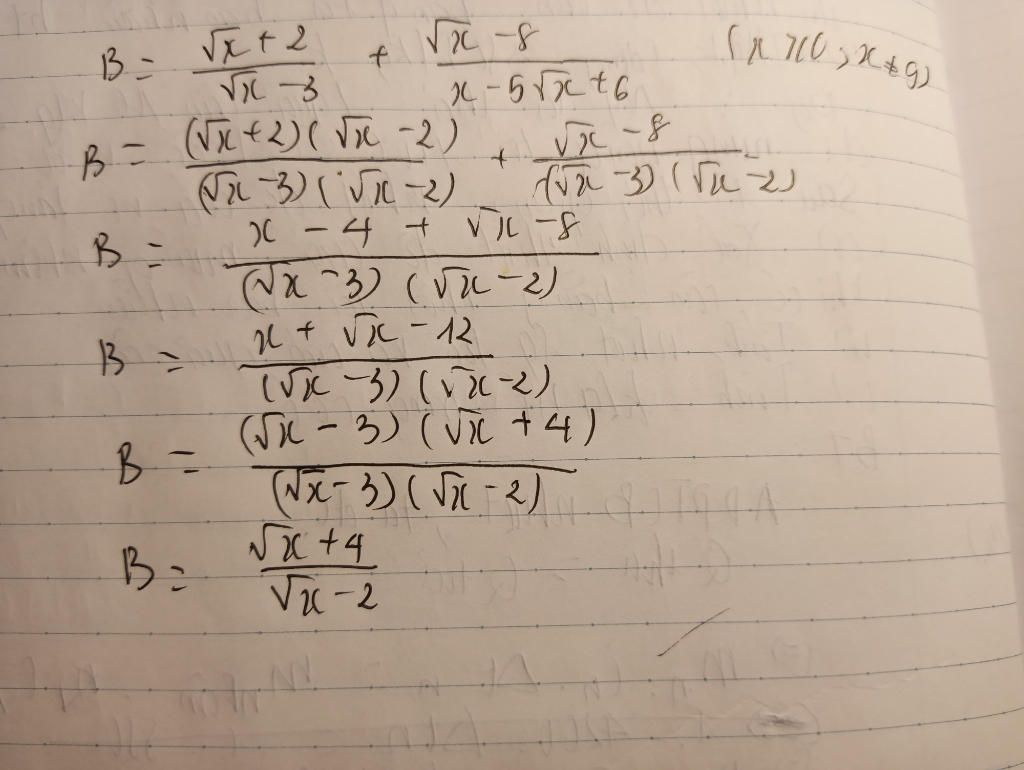 B = (√x + 2)/(√x - 3) + (√x - 8)/(x - 5√x + 6) (x > 0; x ≠ 9)
B = ((√x + 2)(√x - 2))/((√x - 3)(√x - 2)) + (√x - 8)/((√x - 3)(√x - 2))
B = (x - 4 + √x - 8)/((√x - 3)(√x - 2))
B = (x + √x - 12)/((√x - 3)(√x - 2))
B = ((√x - 3)(√x + 4))/((√x - 3)(√x - 2))
B = (√x + 4)/(√x - 2)